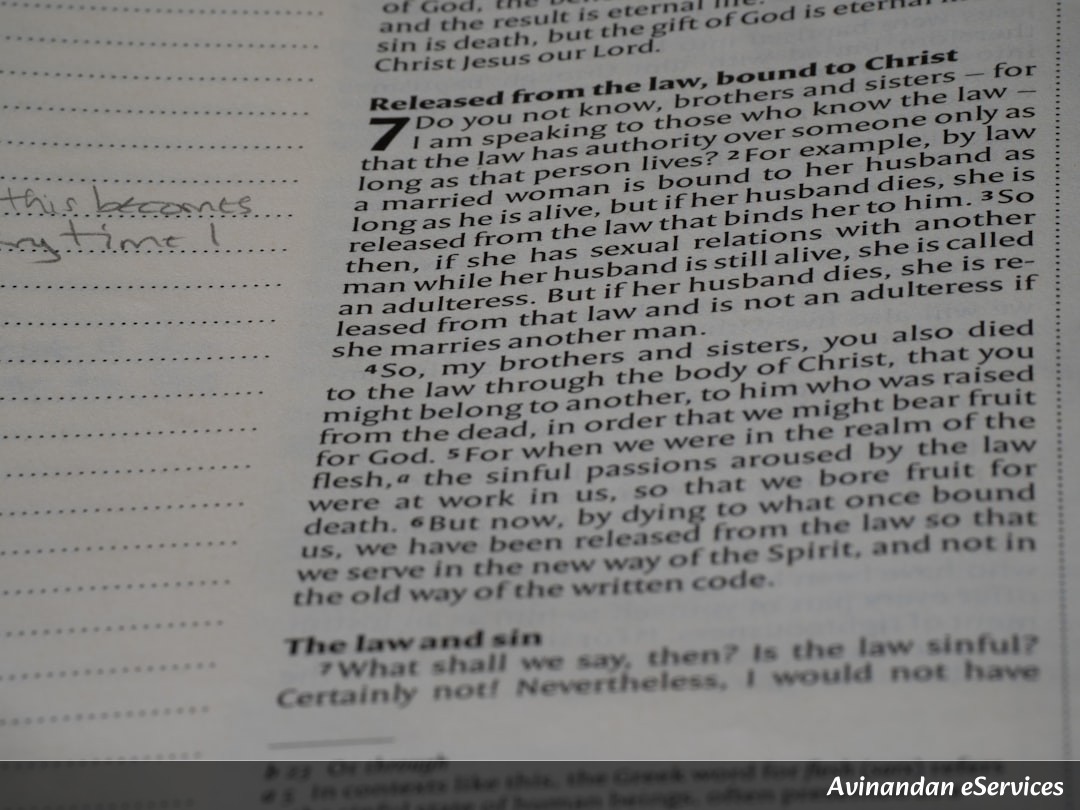 this becomes
my time I
of God, the
and the result is eternal life.
sin is death, but the gift of God is eternal
Christ Jesus our Lord.
Released from the law, bound to Christ
7 Do you not know, brothers and sisters — for
I am speaking to those who know the law —
that the law has authority over someone only as
long as that person lives? 2 For example, by law
a married woman is bound to her husband as
long as he is alive, but if her husband dies, she is
released from the law that binds her to him. 3 So
then, if she has sexual relations with another
man while her husband is still alive, she is called
an adulteress. But if her husband dies, she is re-
leased from that law and is not an adulteress if
she marries another man.
4 So, my brothers and sisters, you also died
to the law through the body of Christ, that you
might belong to another, to him who was raised
from the dead, in order that we might bear fruit
for God. 5 For when we were in the realm of the
flesh,a the sinful passions aroused by the law
were at work in us, so that we bore fruit for
death. 6 But now, by dying to what once bound
us, we have been released from the law so that
we serve in the new way of the Spirit, and not in
the old way of the written code.
The law and sin
7 What shall we say, then? Is the law sinful?
Certainly not! Nevertheless, I would not have
b 23 Or through
a 5 In contexts like this, the Greek word for flesh (sarx) refers
of human beings, often
Avinandan eServices